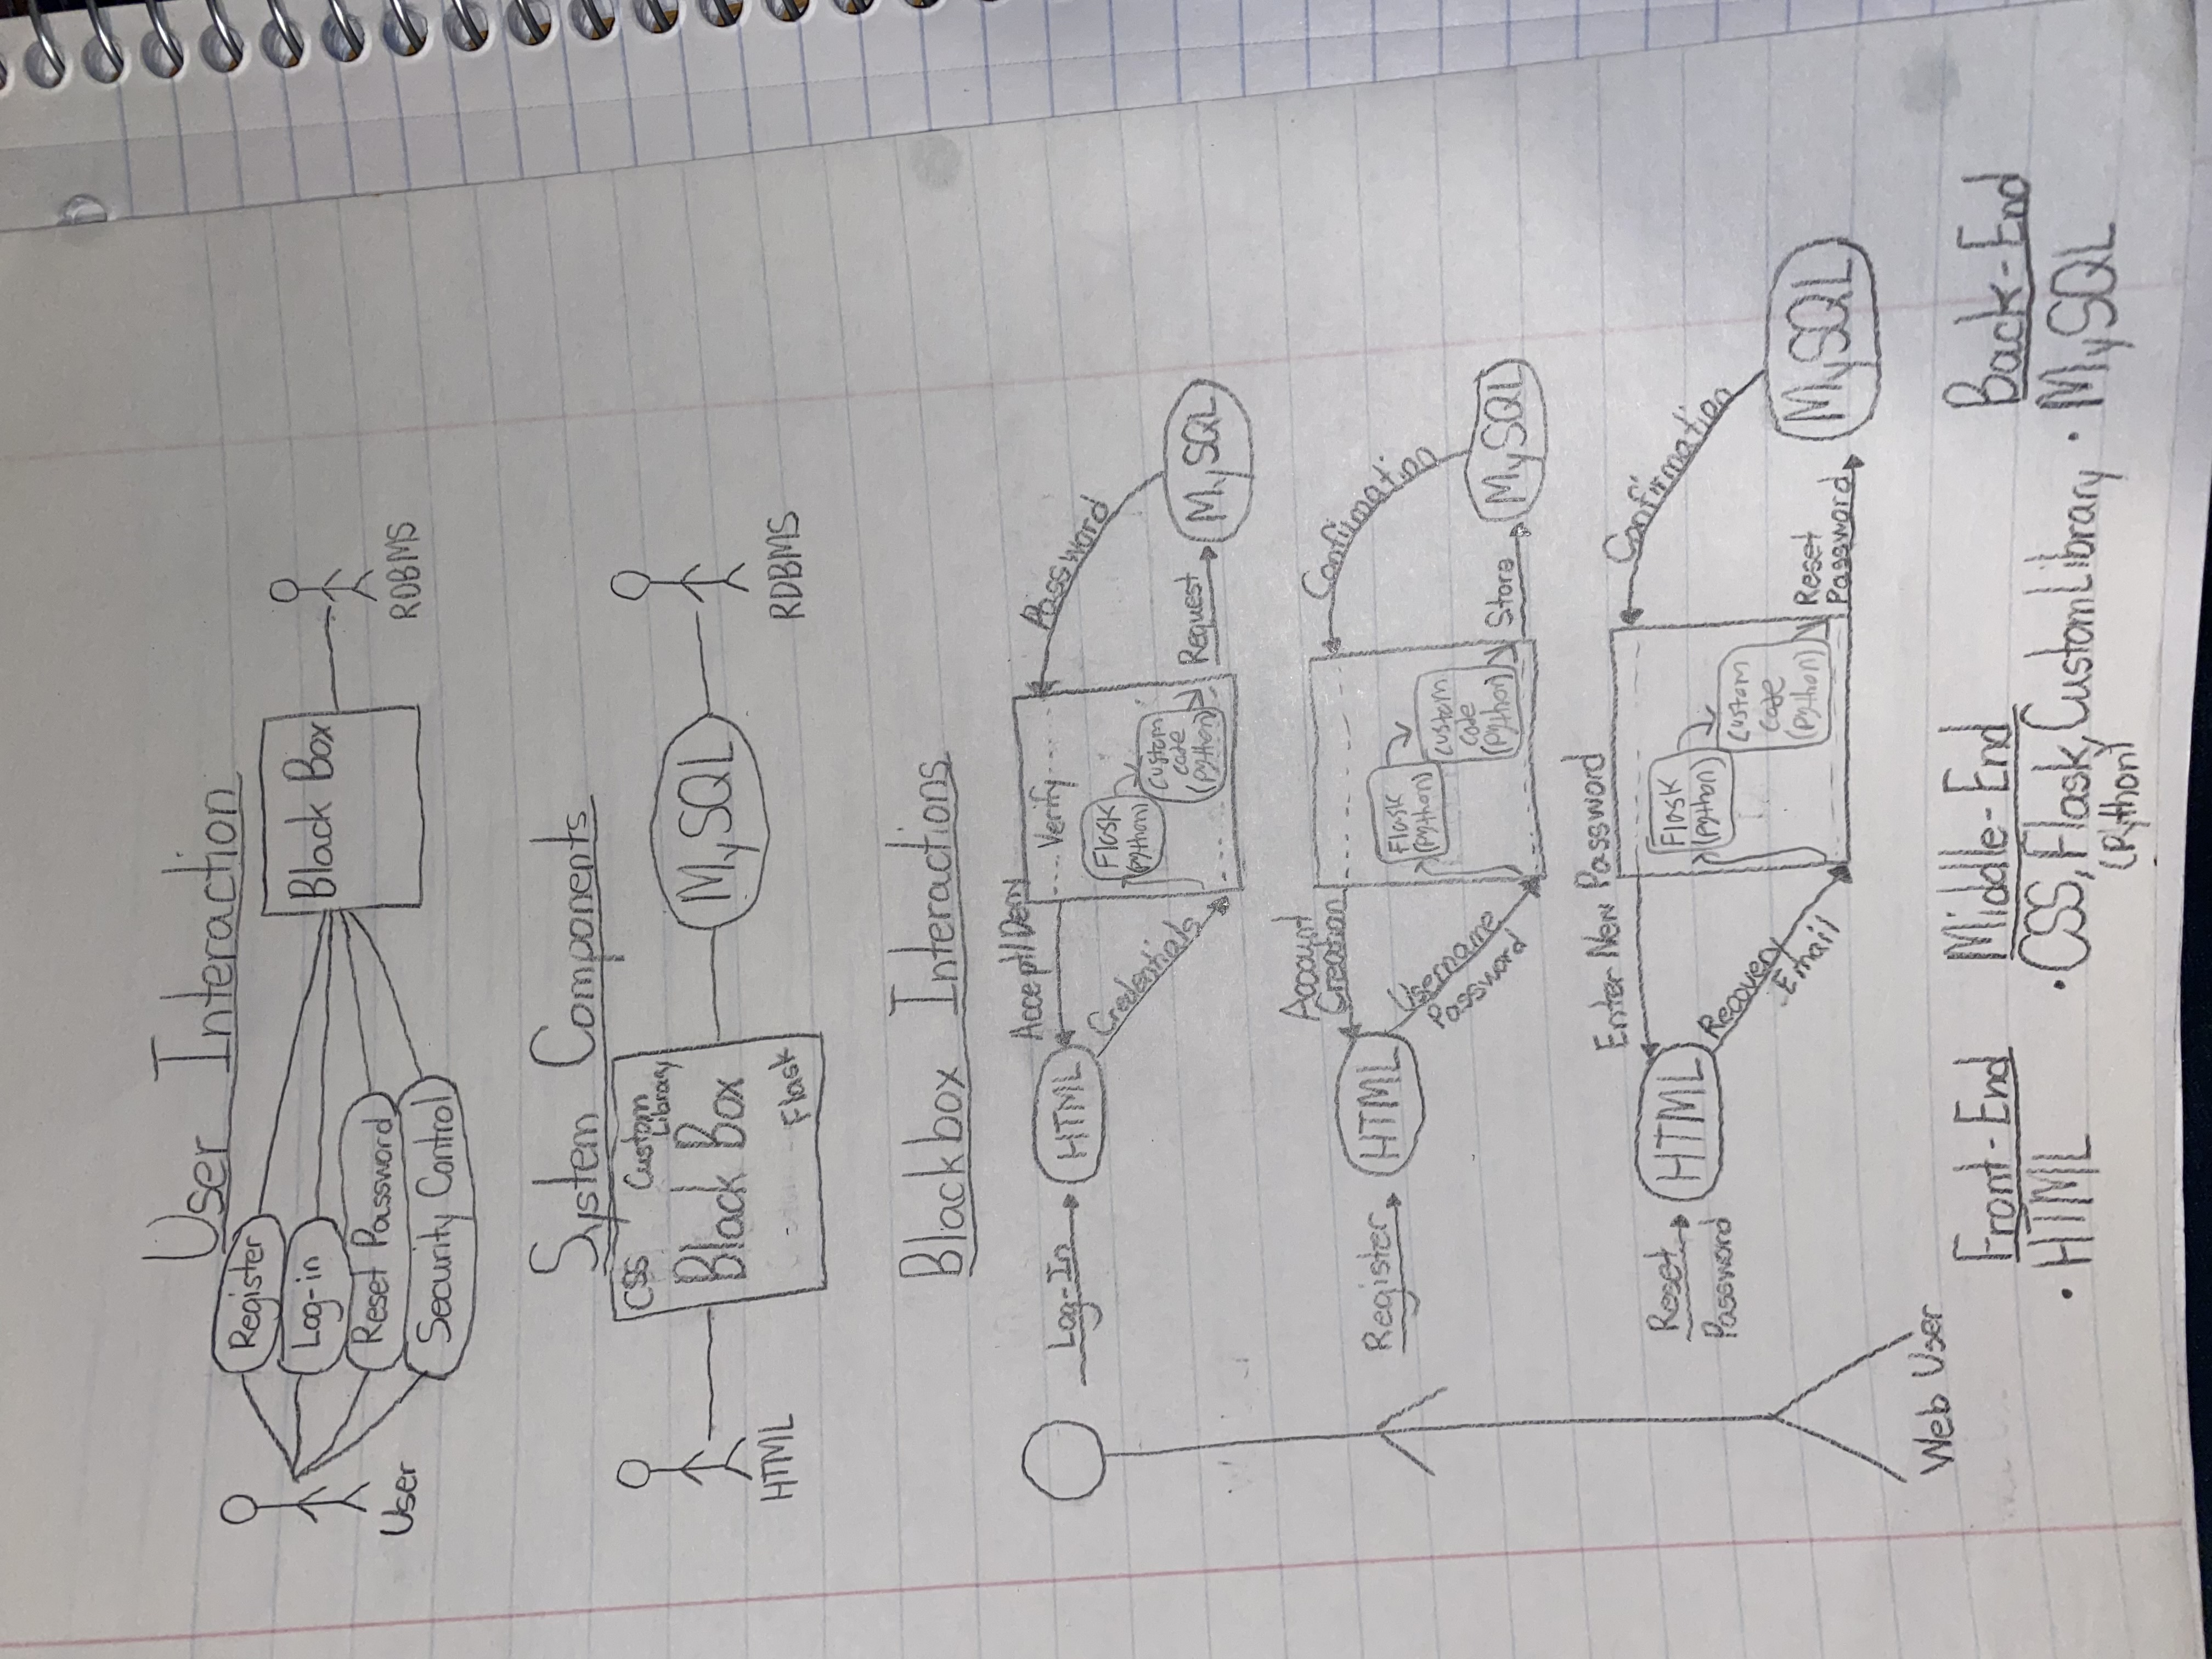 User Interaction
Register
Log-in
Reset Password
Security Control
User
Black Box
RDBMS
System Components
CSS
Custom
Library
Black Box
Flask
HTML
MySQL
RDBMS
Blackbox Interactions
Log-In
HTML
Accept/Deny
Credentials
Verify
Flask
(python)
Custom
code
(python)
Password
Request
MySQL
Register
HTML
Account
Creation
Username
Password
Flask
(python)
Custom
code
(python)
Confirmation
Store
MySQL
Reset
Password
HTML
Enter New Password
Recovery
Email
Flask
(python)
Custom
code
(python)
Confirmation
Reset
Password
MySQL
Web User
Front-End
• HTML
Middle-End
• CSS, Flask, Custom Library
(Python)
Back-End
• MySQL